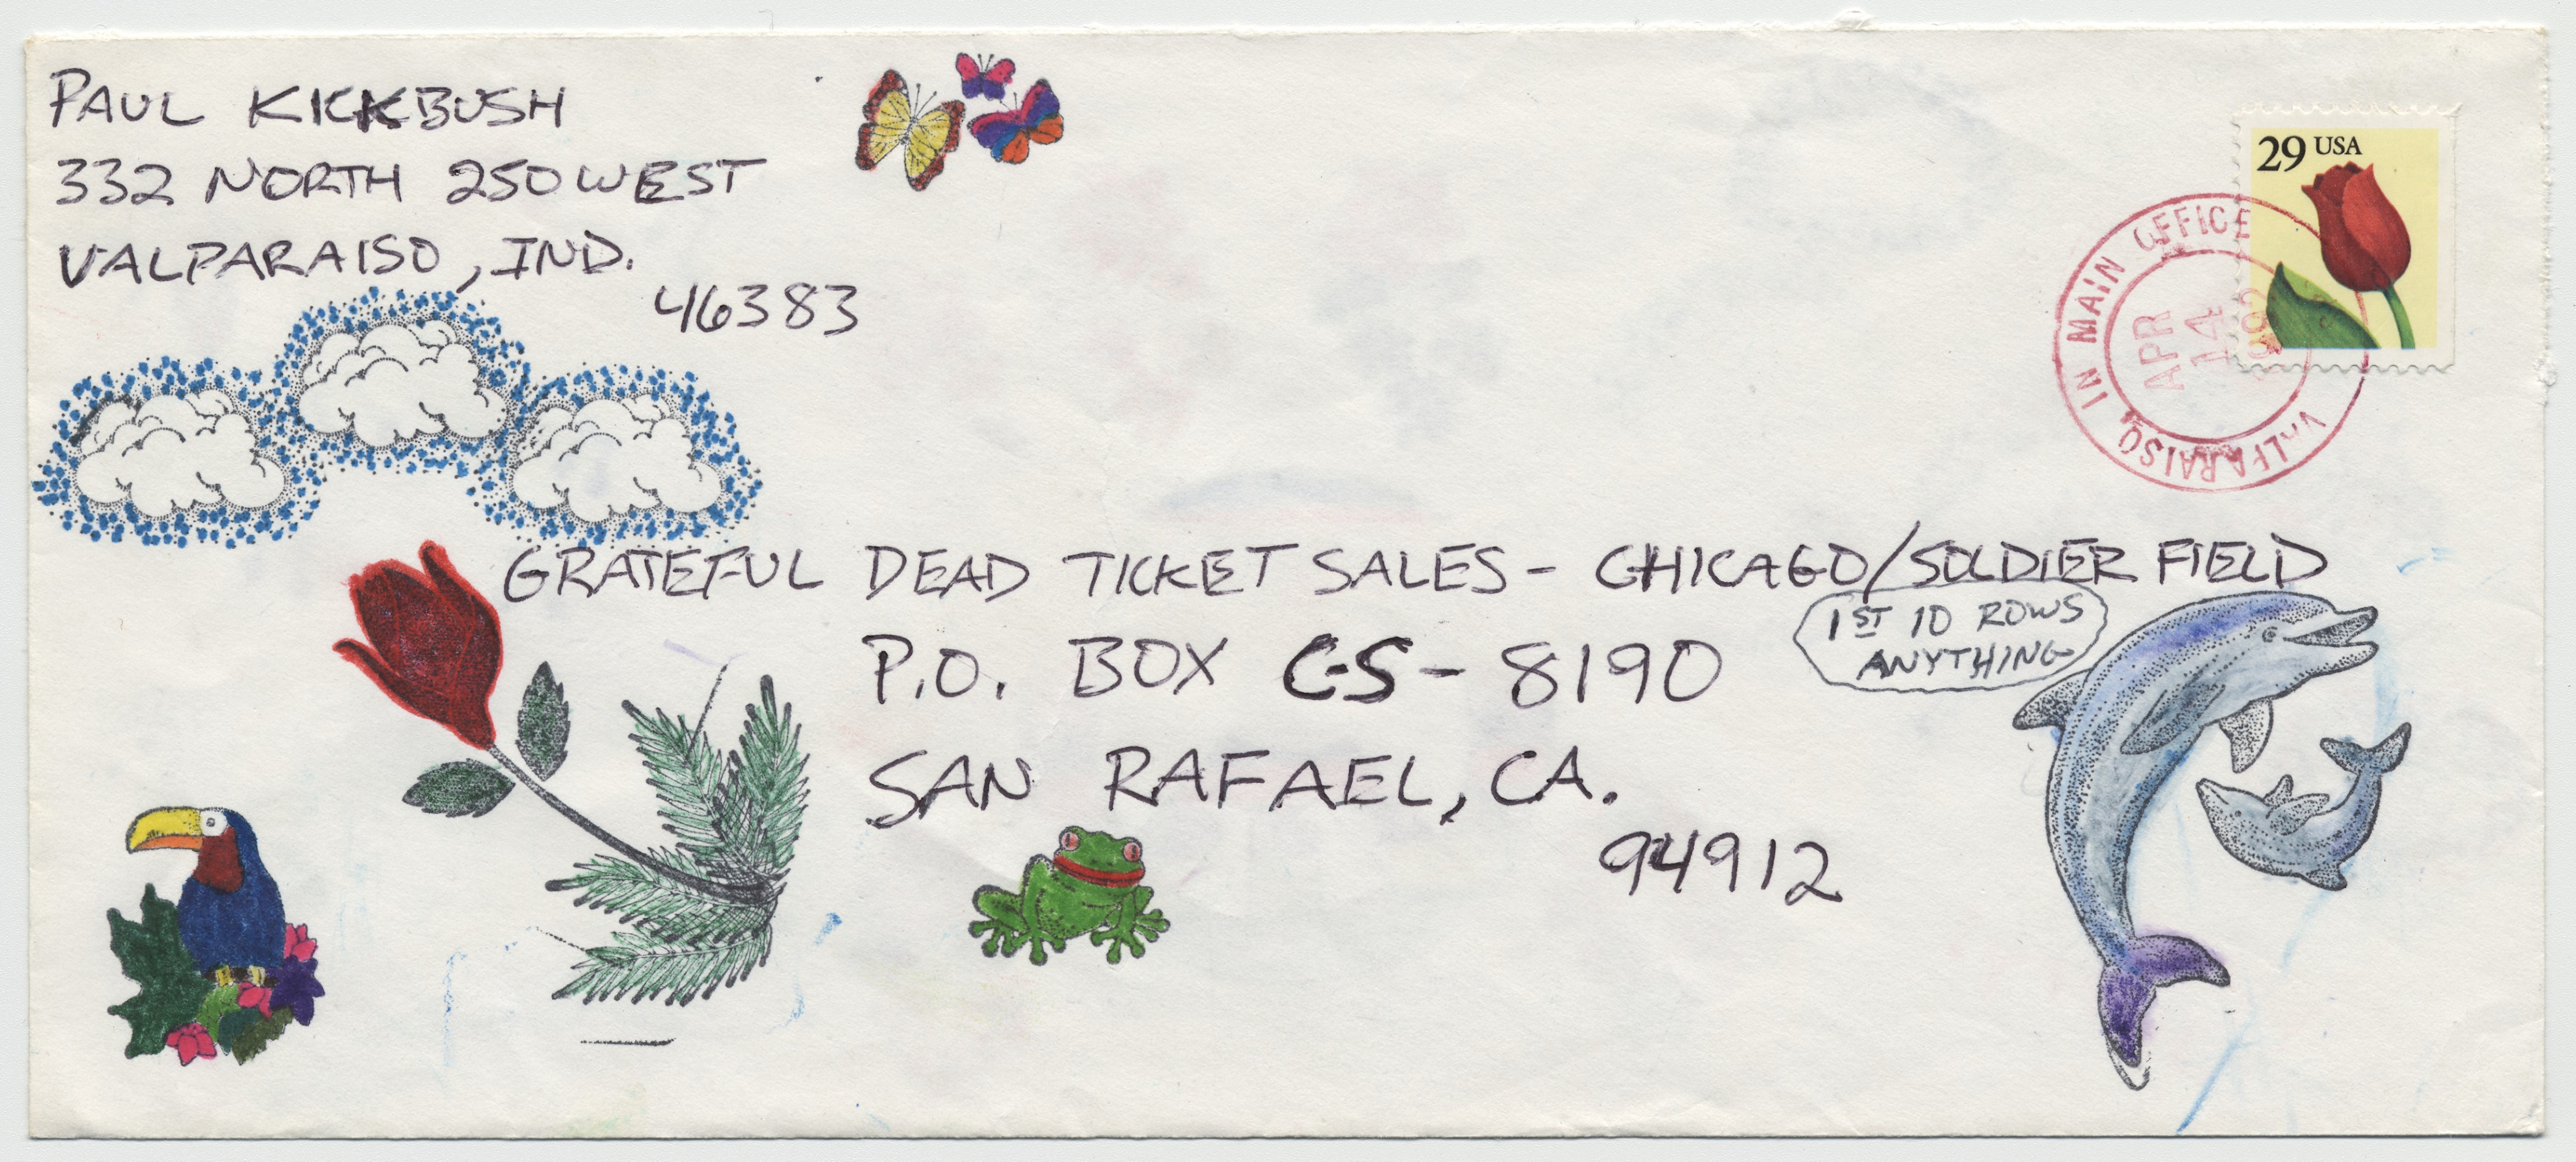 PAUL KICKBUSH
332 NORTH 250 WEST
VALPARAISO, IND.
46383
29 USA
VALPARAISO, IN MAIN OFFICE
APR
14
GRATEFUL DEAD TICKET SALES - CHICAGO/SOLDIER FIELD
1ST 10 ROWS
ANYTHING
P.O. BOX CS-8190
SAN RAFAEL, CA.
94912